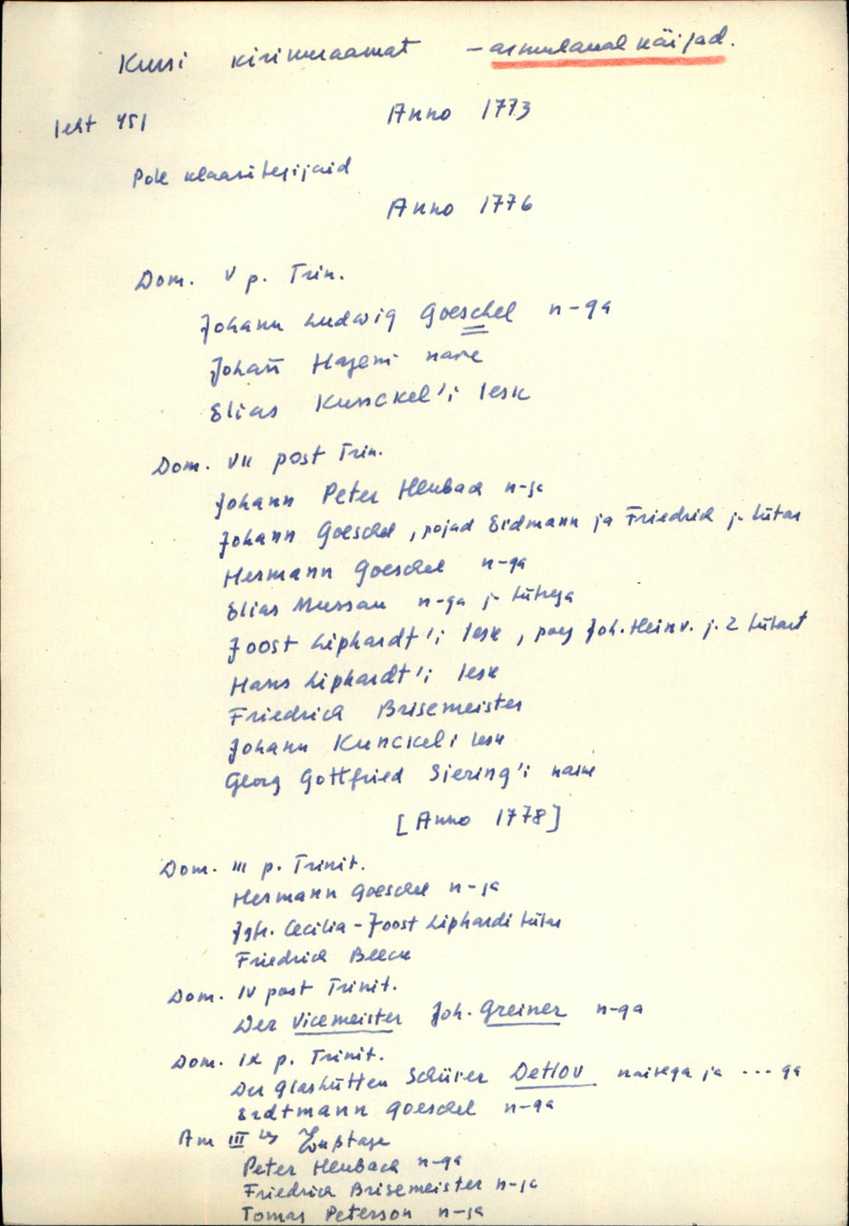 Kursi kirikuraamat - armulaual käijad.
leht 451 Anno 1773
Pole klaasitegijaid
Anno 1776
Dom. V p. Trin.
Johann Ludwig Goeschel n-ga
Johañ Hageni naine
Elias Kunckel'i lesk
Dom. VII post Trin.
Johann Peter Heubach n-ga
Johann Goeschel, pojad Erdmann ja Friedrich j. tütar
Hermann Goeschel n-ga
Elias Mussau n-ga j. tütrega
Joost Liphardt'i lesk, poeg Joh. Heinr. j. 2 tütart
Hans Liphardt'i lesk
Friedrich Brisemeister
Johann Kunckeli lesk
Georg Gottfried Siering'i naine
[Anno 1778]
Dom. III p. Trinit.
Hermann Goeschel n-ga
Jgfr. Cecilia - Joost Liphardi tütar
Friedrich Beeck
Dom. IV post Trinit.
Der Vicemeister Joh. Greiner n-ga
Dom. IX p. Trinit.
Der Glashütten Schürer Detlov naisega ja ... ga
Erdtmann Goeschel n-ga
Am III
Peter Heubach n-ga
Friedrich Brisemeister n-ga
Tomas Peterson n-ga